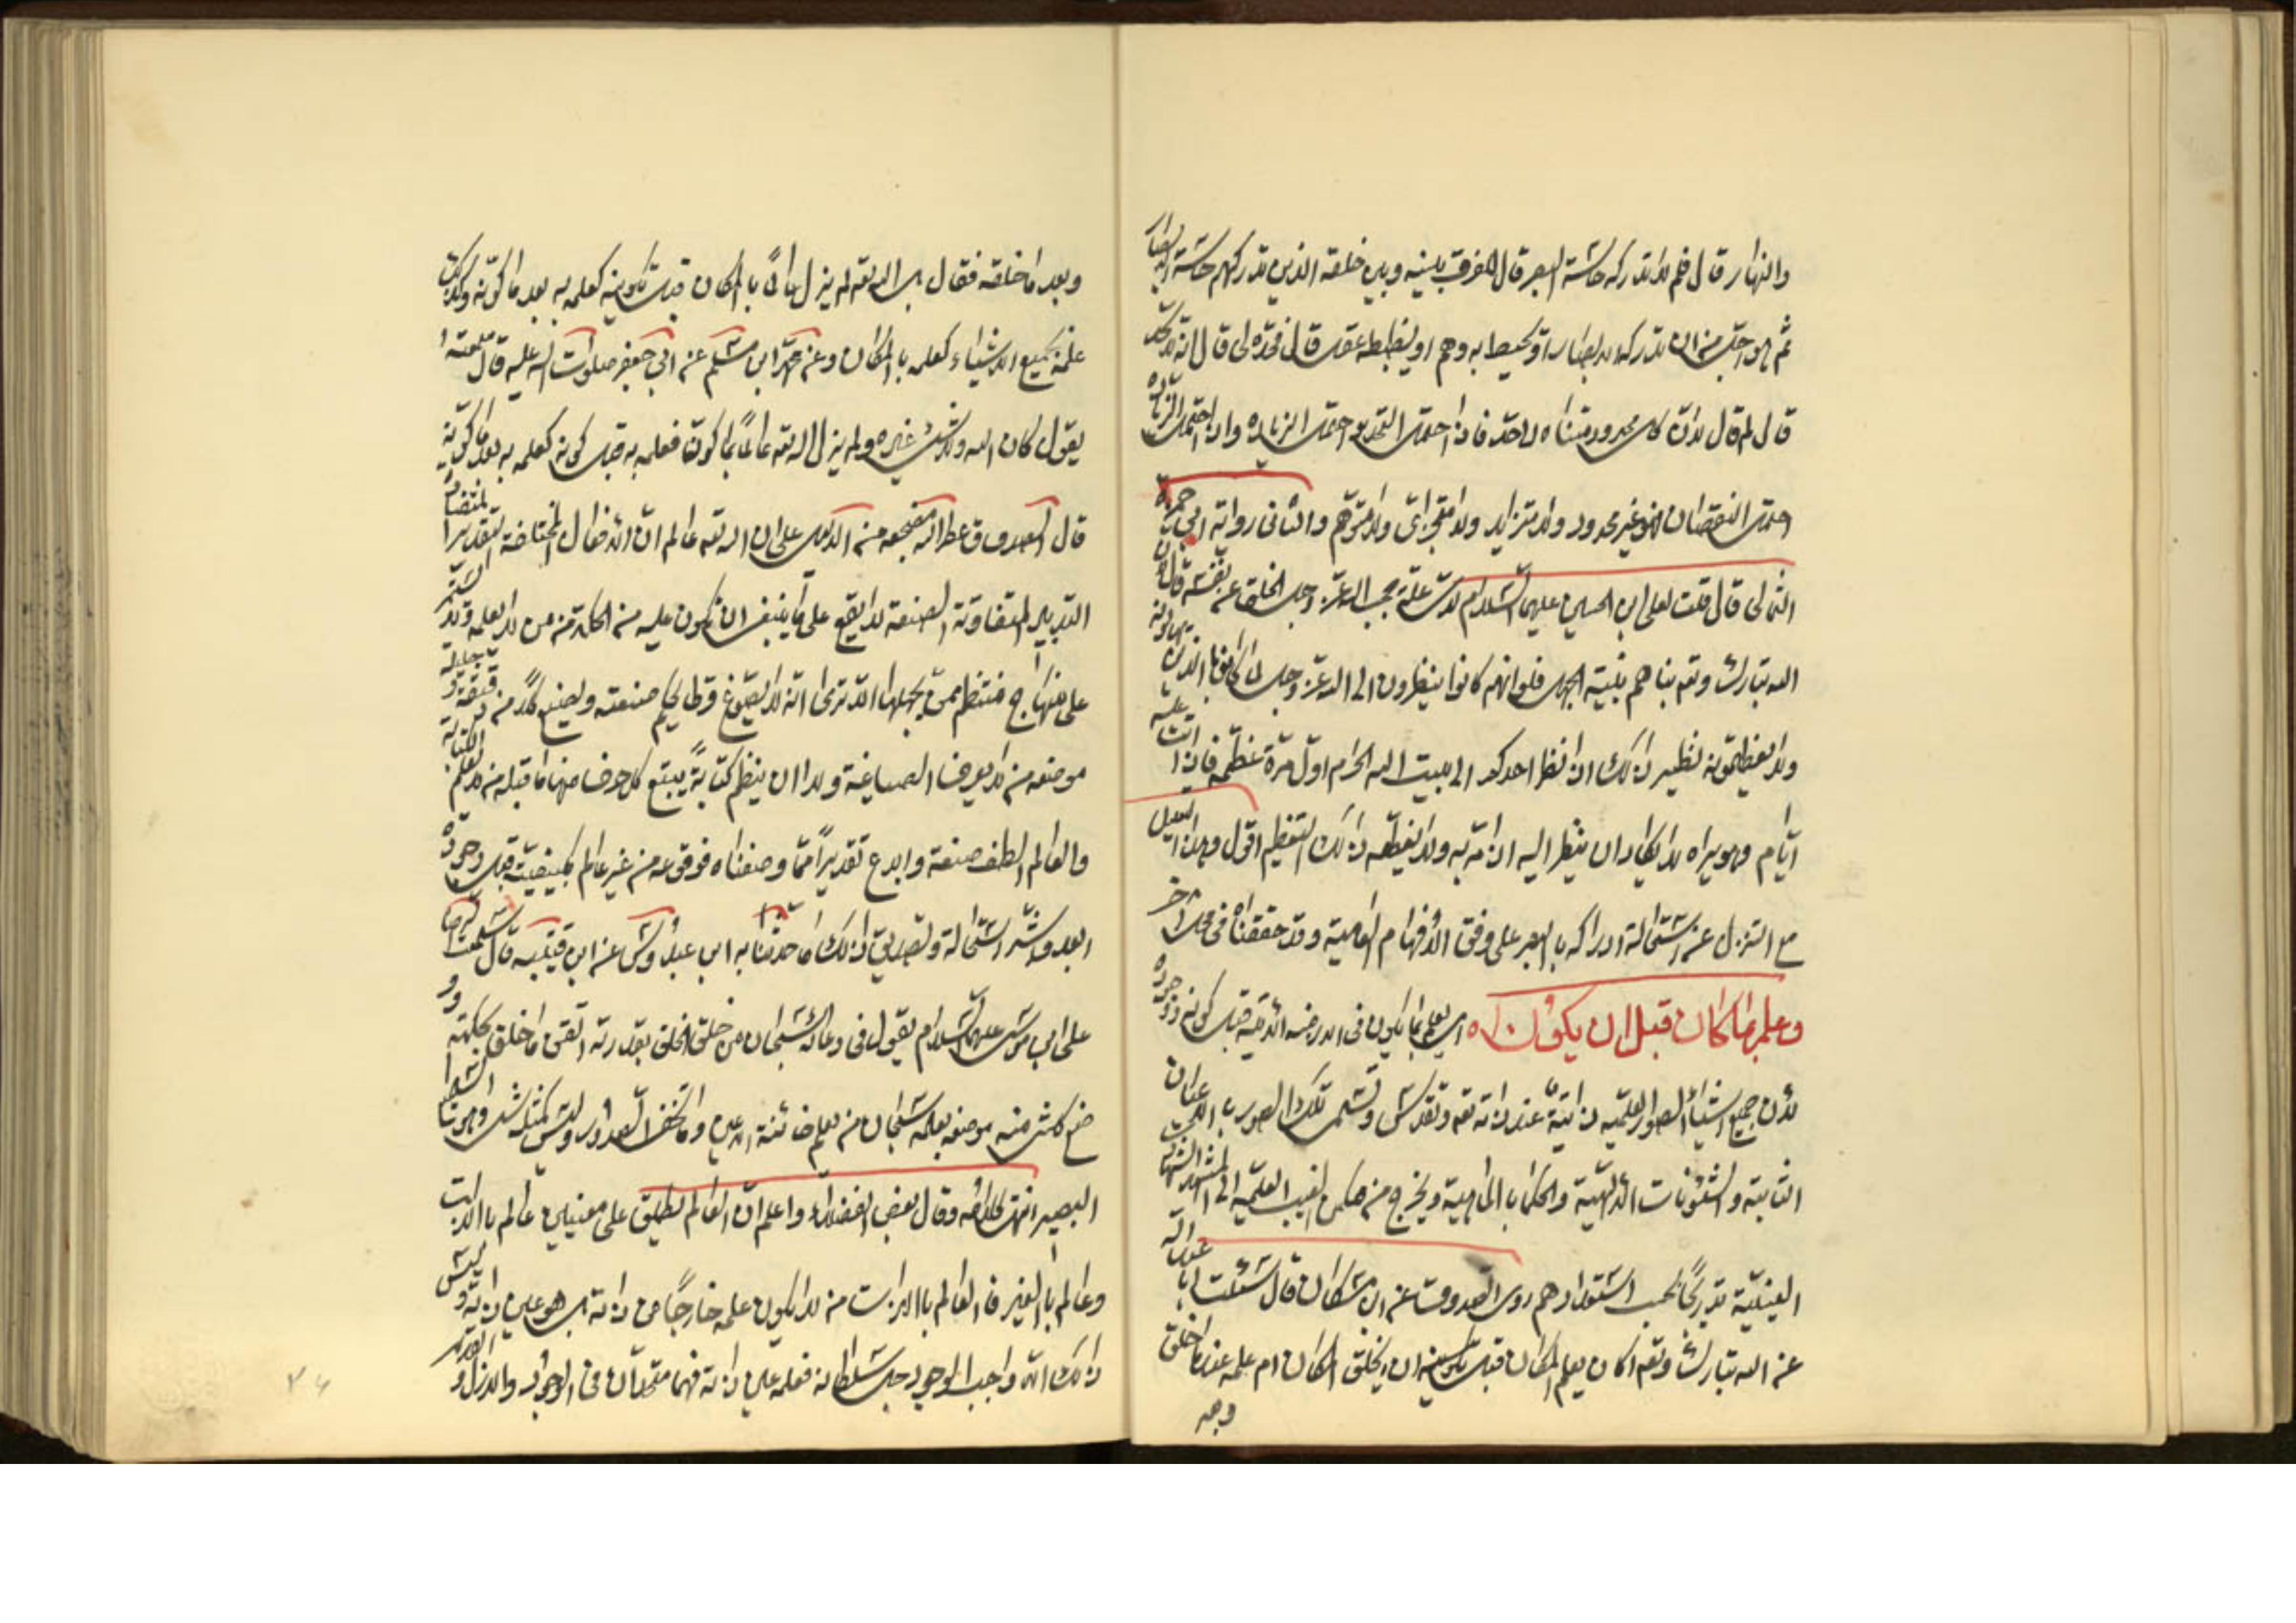 والنهار قال فلم لا تدركه حاسة البصر قال للفرق بينه وبين خلقه الذين تدركهم حاسة الابصار
ثم هو اجل من ان تدركه الابصار او يحيط به وهم او يضبطه عقل قال فحده لى قال انه لا يحد
قال لم قال لان كل محدود متناه الى حد فاذا احتمل التحديد احتمل الزيادة واذا احتمل الزيادة
احتمل النقصان فهو غير محدود ولا متزايد ولا متجزى ولا متوهم والثانى رواية ابى حمزة
الثمالى قال قلت لعلى ابن الحسين عليهما السلام لاى علة حجب الله عز وجل الخلق عن نفسه قال لان
الله تبارك وتعم بناهم بنية الجهل فلو انهم كانوا ينظرون الى الله عز وجل لما كانوا بالذين يهابونه
ولا يعظمونه نظير ذلك اذا نظر احدكم الى بيت الله الحرام اول مرة عظمه فاذا اتت عليه
ايام وهو يراه لا يكاد ان ينظر اليه اذا مر به ولا يعظمه ذلك التعظيم اقول وهذا التعليل
مع التنزل عن استحالة ادراكه بالبصر على وفق الافهام العامية وقد حققناه فى محل اخر
وعلم بما كان قبل ان يكون اى يعلم بما يكون فى الارض الابدية قبل كونه ووجوده
لان جميع اشياء الصور العلمية ذاتية عند ذاته تعم وتقدس وتسمى تلك الصور بالاعيان
الثابتة والشئونات الالهية والحقايق الماهية ويخرج من مكمن الغيب العلمية الى المشهد الشهادة
العينية تدريجا بحسب استعدادهم روى الصدوق عن ابن مسكان قال سئلت ابا عبد الله
عن الله تبارك وتعم اكان يعلم المكان قبل تكوينه ان يخلق المكان ام علمه عندما خلقه
وبعد
وبعد ما خلقه فقال بل الله تعم لم يزل عالما بالمكان قبل تكوينه كعلمه به بعد ما كونه وكذلك
علمه بجميع الاشياء كعلمه بالمكان وعن محمد ابن مسلم عن ابى جعفر صلوات الله عليه قال سمعته
يقول كان الله ولا شىء غيره ولم يزل الله تعم عالما بما كون فعلمه به قبل كونه كعلمه به بعد ما كونه
قال الصدوق عطر الله مضجعه من الدليل على ان الله تعم عالم ان الافعال المختلفة التقدير المتضادة
التدبير المتفاوتة الصنعة لا يقع على ما ينبغى ان يكون عليه من الحكمة ممن لا يعلمه ولا يستمر
على منهاج منتظم ممن يجهلها الا ترى انه لا يصوغ قرطا يحكم صنعته ويضع كلا من دقيقه وجليله
موضعه من لا يعرف الصياغة ولا ان ينظم كتابة يتبع كل حرف منها ما قبله من لا يعلم الكتابة
والعالم الطف صنعة وابدع تقديرا مما وصفناه فوقوعه من غير عالم بكيفيته قبل وجوده
ابعد واشد استحالة وتصديق ذلك ما حدثنا به ابن عبدوس عن ابن قتيبه قال سمعت الرضا
على ابن موسى عليهما السلام يقول فى دعائه سبحان من خلق الخلق بقدرته اتقن ما خلق بحكمته و
وضع كل شئ منه موضعه بعلمه سبحان من يعلم خائنة الاعين وما تخفى الصدور وليس كمثله شئ وهو السميع
البصير انتهى كلامه وقال بعض الفضلاء واعلم ان العالم يطلق على معنيين عالم بالذات
وعالم بالغير فالعالم بالذات من لا يكون علمه خارجا من ذاته بل هو عين ذاته وليس
ذلك الا واجب الوجود جل سلطانه فعلمه عين ذاته فهما متحدان فى الوجود والازل والقدم